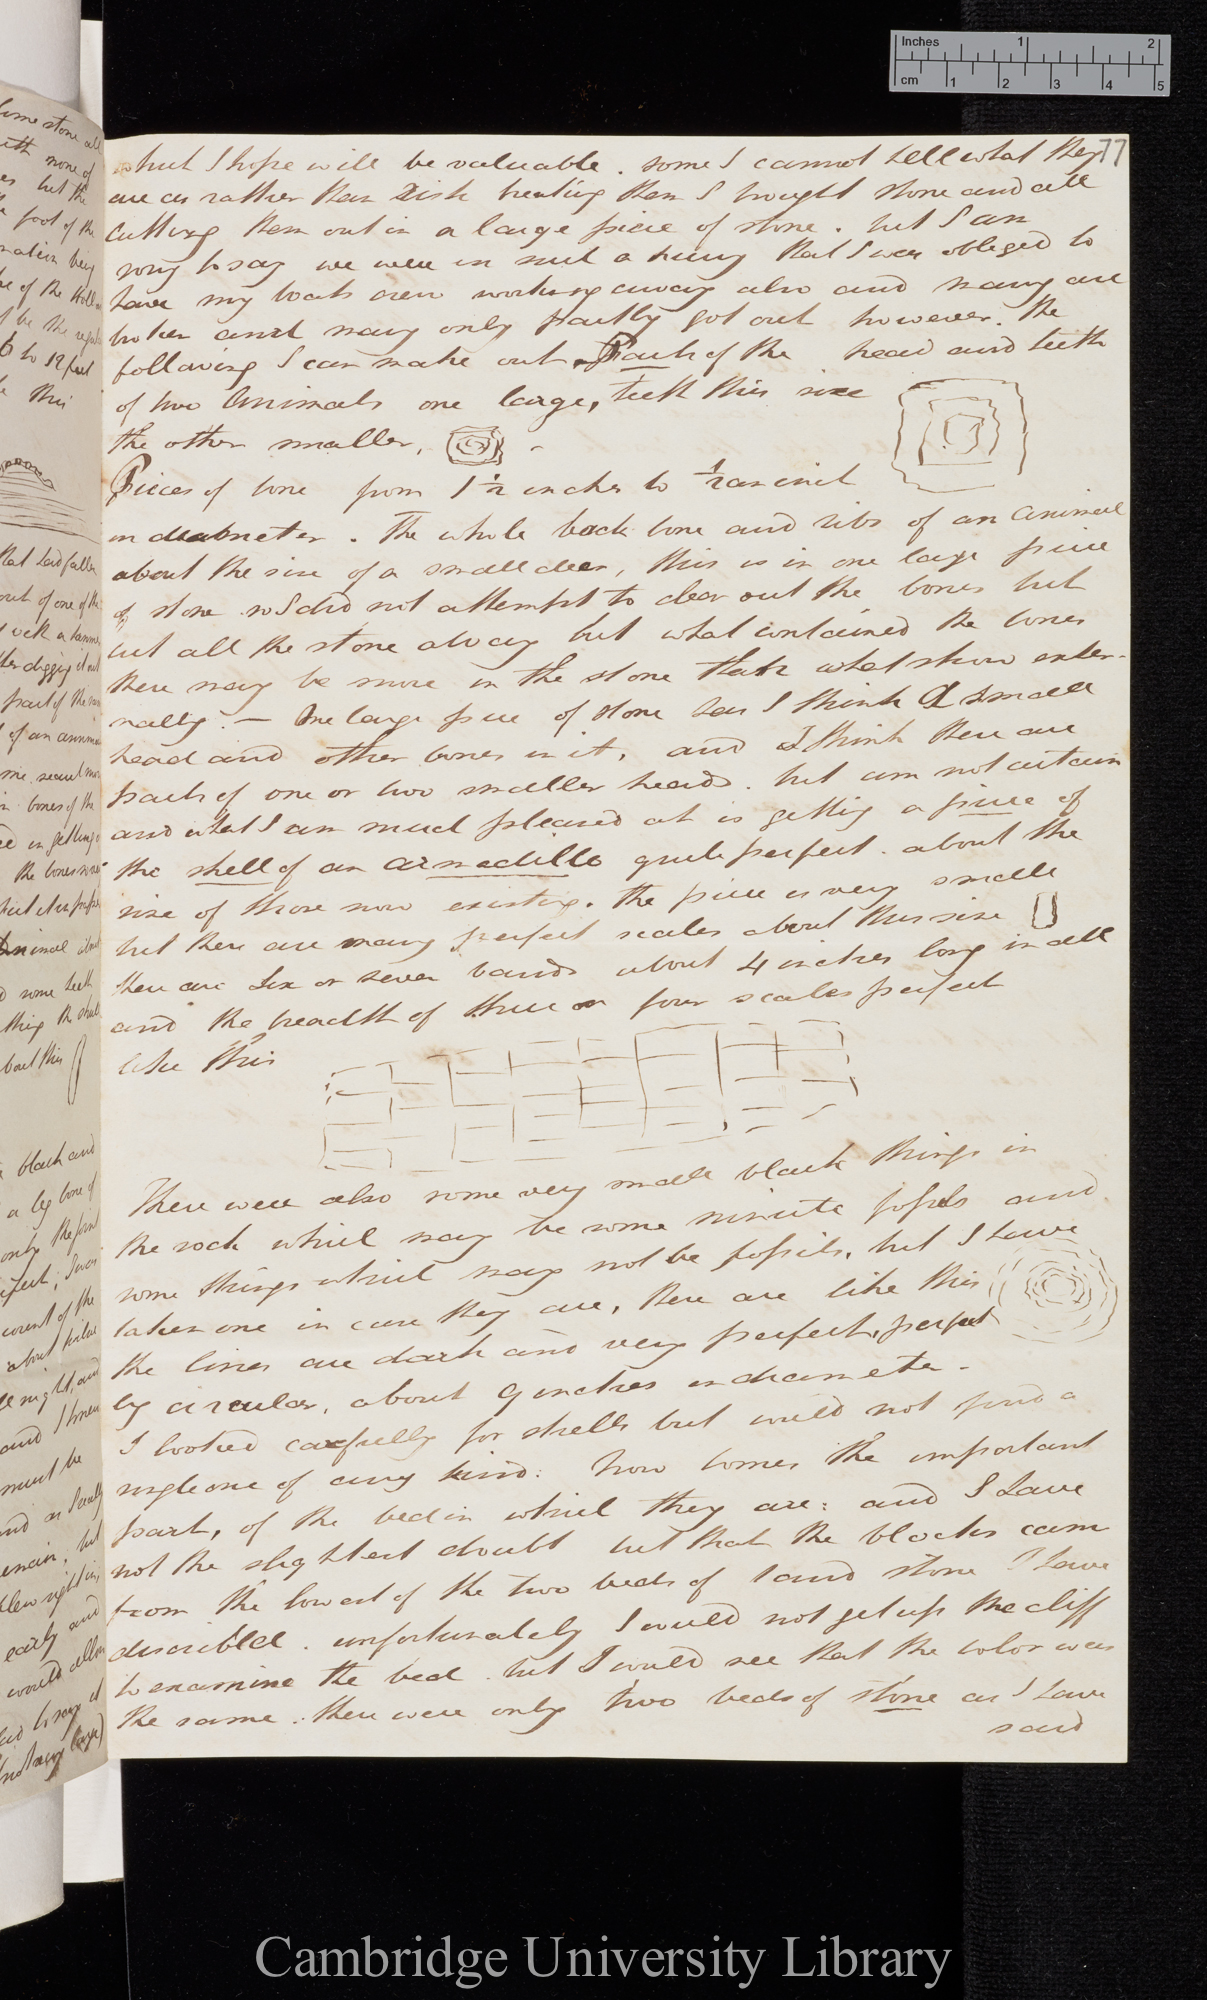 Inches 1 2
cm 1 2 3 4 5
77
but I hope will be valuable. some I cannot tell what they
are as rather than risk breaking them I brought stone and all
cutting them out in a large piece of stone. but I am
sorry to say we were in such a hurry that I was obliged to
have my boats crew working away also and many are
broken and many only partly got out however. the
following I can make out. Parts of the head and teeth
of two Animals one large, teeth this size
the other smaller,
Pieces of bone from 1 1/2 inches to 1/2 an inch
in diabmeter. The whole back bone and ribs of an animal
about the size of a small deer, this is in one large piece
of stone so I did not attempt to clear out the bones but
cut all the stone away but what contained the bones
there may be more in the stone than what show exter-
nally. — One large piece of stone has I think a small
head and other bones in it, and I think there are
parts of one or two smaller heads. but am not certain
and what I am much pleased at is getting a piece of
the shell of an armadillo quite perfect. about the
size of those now existing. the piece is very small
but there are many perfect scales about this size
there are six or seven bands about 4 inches long in all
and the breadth of three or four scales perfect
like this
There were also some very small black things in
the rock which may be some minute fossils and
some things which may not be fossils, but I have
taken one in case they are, there are like this
the lines are dark and very perfect, perfect
ly circular, about 9 inches in diameter.
I looked carefully for shells but could not find a
single one of any kind: now comes the important
part, of the bed in which they are: and I have
not the slightest doubt but that the blocks came
from the lowest of the two beds of sand stone I have
discribled. unfortunately I could not get up the cliff
to examine the bed. but I could see that the color was
the same: there were only two beds of stone as I have
said
Cambridge University Library